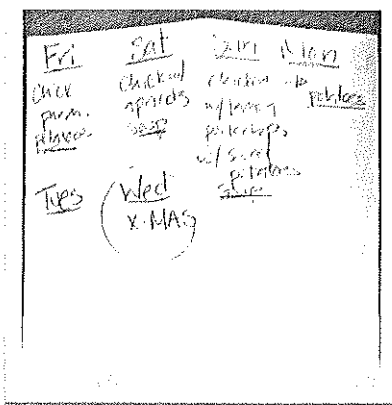 Fri
Chick
parm.
potatoes
Sat
Chick w/
apricots
soup
Sun
chicken
w/
w/ sweet
potatoes
soup
Mon
potatoes
Tues
Wed
X-MAS